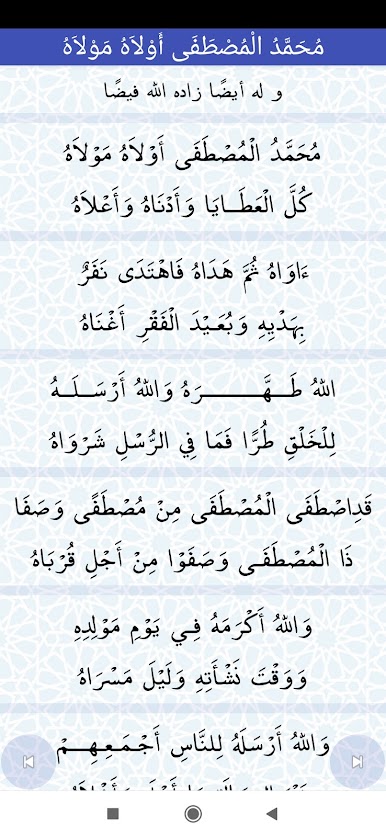 مُحَمَّدُ الْمُصْطَفَى أَوْلاَهُ مَوْلاَهُ
و له أيضًا زاده الله فيضًا
مُحَمَّدُ الْمُصْطَفَى أَوْلاَهُ مَوْلاَهُ
كُلَّ الْعَطَــايَا وَأَدْنَاهُ وَأَعْلاَهُ
ءَاوَاهُ ثُمَّ هَدَاهُ فَاهْتَدَى نَفَرٌ
بِهَدْيِهِ وَبُعَيْدَ الْفَقْرِ أَغْنَاهُ
اللهُ طَــهَّـــــــرَهُ وَاللهُ أَرْسَــلَــهُ
لِلْخَلْقِ طُرًّا فَمَا فِي الرُّسْلِ شَرْوَاهُ
قَدِاصْطَفَى الْمُصْطَفَى مِنْ مُصْطَفًى وَصَفَا
ذَا الْمُصْطَفَـى وَصَفَوْا مِنْ أَجْلِ قُرْبَاهُ
وَاللهُ أَكْرَمَهُ فِـي يَوْمِ مَوْلِدِهِ
وَوَقْتَ نَشْأَتِهِ وَلَيْلَ مَسْرَاهُ
وَاللهُ أَرْسَلَهُ لِلنَّاسِ أَجْـمَـعِـهِــمْ